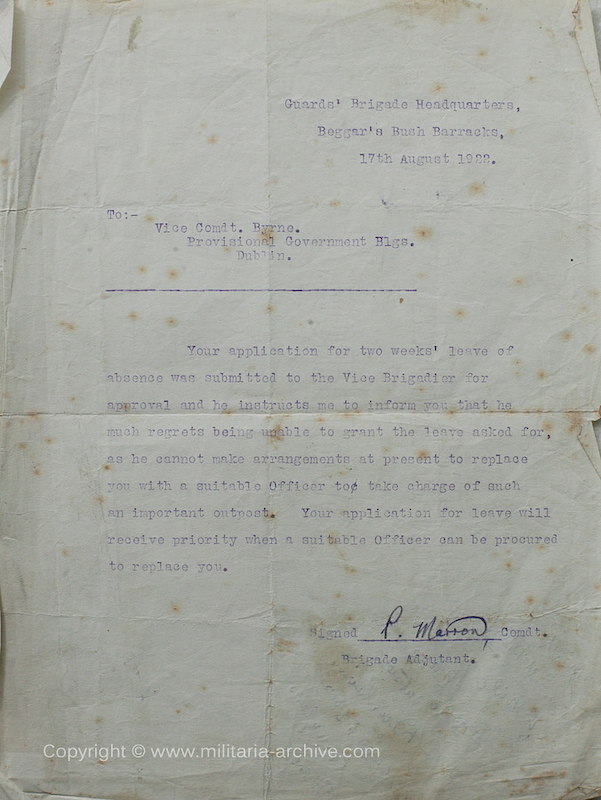 Guards' Brigade Headquarters,
Beggar's Bush Barracks,
17th August 1922.
To:-
Vice Comdt. Byrne.
Provisional Government Blgs.
Dublin.
Your application for two weeks' leave of
absence was submitted to the Vice Brigadier for
approval and he instructs me to inform you that he
much regrets being unable to grant the leave asked for,
as he cannot make arrangements at present to replace
you with a suitable Officer to take charge of such
an important outpost. Your application for leave will
receive priority when a suitable Officer can be procured
to replace you.
Signed P. Marron, Comdt.
Brigade Adjutant.
Copyright © www.militaria-archive.com